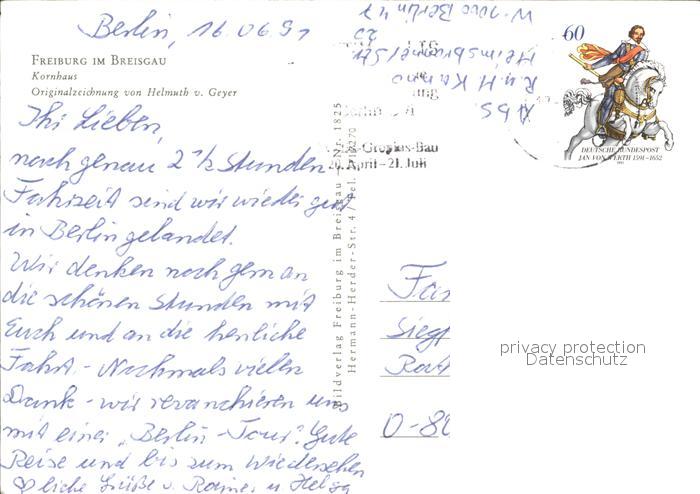 Berlin, 16.06.91
FREIBURG IM BREISGAU
Kornhaus
Originalzeichnung von Helmuth v. Geyer
Ihr Lieben,
nach genau 2 ½ Stunden
Fahrzeit sind wir wieder gut
in Berlin gelandet.
Wir denken noch gern an
die schönen Stunden mit
Euch und an die herrliche
Fahrt. - Nochmals vielen
Dank - wir revanchieren uns
mit einer "Berlin-Tour". Gute
Reise und bis zum Wiedersehen
♡liche Grüße v. Rainer u. Helga
Bildverlag Freiburg im Breisgau Nr. 1825
Hermann-Herder-Str. 4 / Tel.
Abs.
R. u. H.
W-1000 Berlin 47
-Gropius-Bau
April - 21. Juli
60
DEUTSCHE BUNDESPOST
JAN VON WERTH 1591-1652
1991
Fa
Sieg
D-8
privacy protection
Datenschutz